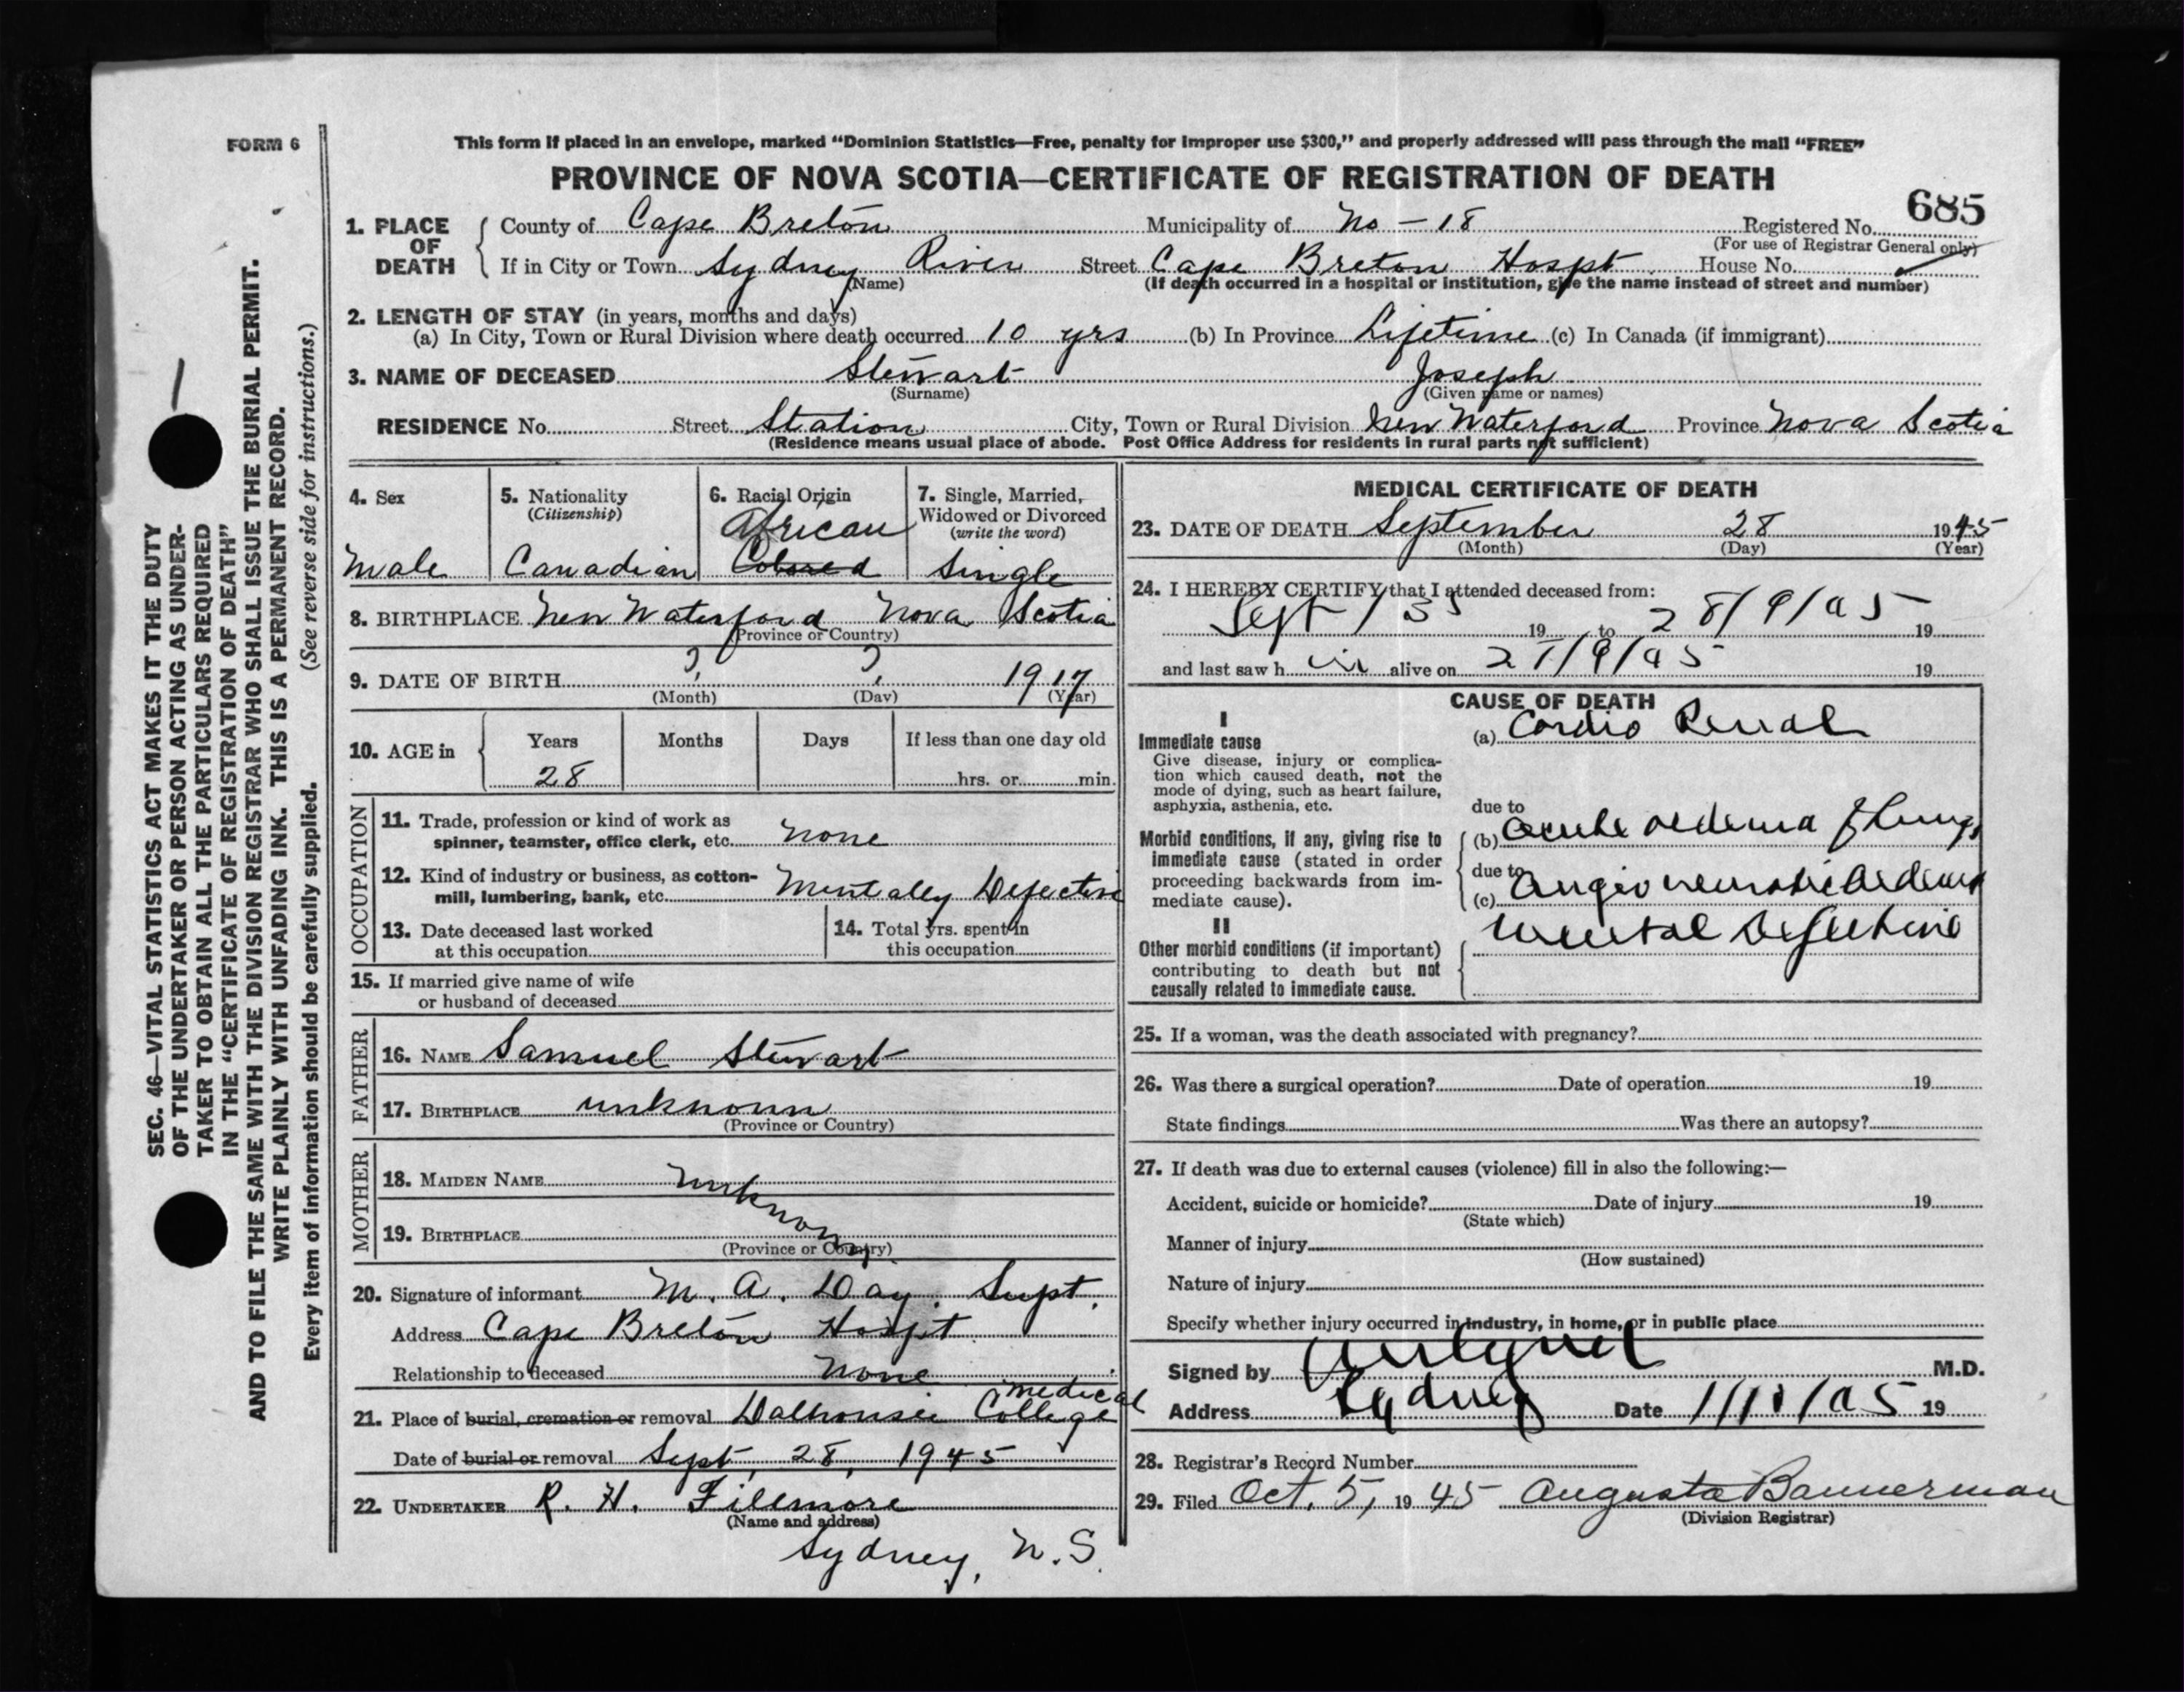 FORM 6
This form if placed in an envelope, marked “Dominion Statistics—Free, penalty for improper use $300,” and properly addressed will pass through the mail “FREE”
PROVINCE OF NOVA SCOTIA—CERTIFICATE OF REGISTRATION OF DEATH
685
1. PLACE OF DEATH
County of Cape Breton Municipality of No - 18 Registered No.
(For use of Registrar General only)
If in City or Town Sydney River Street Cape Breton Hospt. House No.
(Name) (If death occurred in a hospital or institution, give the name instead of street and number)
2. LENGTH OF STAY (in years, months and days)
(a) In City, Town or Rural Division where death occurred 10 yrs (b) In Province Lifetime (c) In Canada (if immigrant)
3. NAME OF DECEASED Stewart Joseph
(Surname) (Given name or names)
RESIDENCE No. Street Station City, Town or Rural Division New Waterford Province Nova Scotia
(Residence means usual place of abode. Post Office Address for residents in rural parts not sufficient)
4. Sex
Male
5. Nationality
(Citizenship)
Canadian
6. Racial Origin
African
Colored
7. Single, Married,
Widowed or Divorced
(write the word)
Single
8. BIRTHPLACE New Waterford Nova Scotia
(Province or Country)
9. DATE OF BIRTH ? ? 1917
(Month) (Day) (Year)
10. AGE in
Years Months Days If less than one day old
28 hrs. or min.
OCCUPATION
11. Trade, profession or kind of work as
spinner, teamster, office clerk, etc. None
12. Kind of industry or business, as cotton-
mill, lumbering, bank, etc. Mentally Defective
13. Date deceased last worked
at this occupation
14. Total yrs. spent in
this occupation
15. If married give name of wife
or husband of deceased
FATHER
16. NAME Samuel Stewart
17. BIRTHPLACE unknown
(Province or Country)
MOTHER
18. MAIDEN NAME unknown
19. BIRTHPLACE
(Province or Country)
20. Signature of informant M. A. Day. Supt.
Address Cape Breton Hospt.
Relationship to deceased None
21. Place of burial, cremation or removal Dalhousie Medical College
Date of burial or removal Sept, 28, 1945
22. UNDERTAKER R. H. Fillmore
(Name and address)
Sydney, N.S.
MEDICAL CERTIFICATE OF DEATH
23. DATE OF DEATH September 28 1945
(Month) (Day) (Year)
24. I HEREBY CERTIFY that I attended deceased from:
Sept / 35 19 to 28/9/45 19
and last saw h im alive on 27/9/45 19
CAUSE OF DEATH
I
Immediate cause
Give disease, injury or complica-
tion which caused death, not the
mode of dying, such as heart failure,
asphyxia, asthenia, etc.
(a) Cardio Renal
due to
Morbid conditions, if any, giving rise to
immediate cause (stated in order
proceeding backwards from im-
mediate cause).
(b) acute oedema of lungs
due to
(c) angio neurotic oedema
II
Other morbid conditions (if important)
contributing to death but not
causally related to immediate cause.
Mental Defective
25. If a woman, was the death associated with pregnancy?
26. Was there a surgical operation? Date of operation 19
State findings Was there an autopsy?
27. If death was due to external causes (violence) fill in also the following:—
Accident, suicide or homicide? Date of injury 19
(State which)
Manner of injury
(How sustained)
Nature of injury
Specify whether injury occurred in industry, in home, or in public place
Signed by M.D.
Address Sydney Date 1/10/45 19
28. Registrar's Record Number
29. Filed Oct. 5, 1945 Augusta Bannerman
(Division Registrar)
SEC. 46—VITAL STATISTICS ACT MAKES IT THE DUTY
OF THE UNDERTAKER OR PERSON ACTING AS UNDER-
TAKER TO OBTAIN ALL THE PARTICULARS REQUIRED
IN THE “CERTIFICATE OF REGISTRATION OF DEATH”
AND TO FILE THE SAME WITH THE DIVISION REGISTRAR WHO SHALL ISSUE THE BURIAL PERMIT.
WRITE PLAINLY WITH UNFADING INK. THIS IS A PERMANENT RECORD.
Every item of information should be carefully supplied. (See reverse side for instructions.)